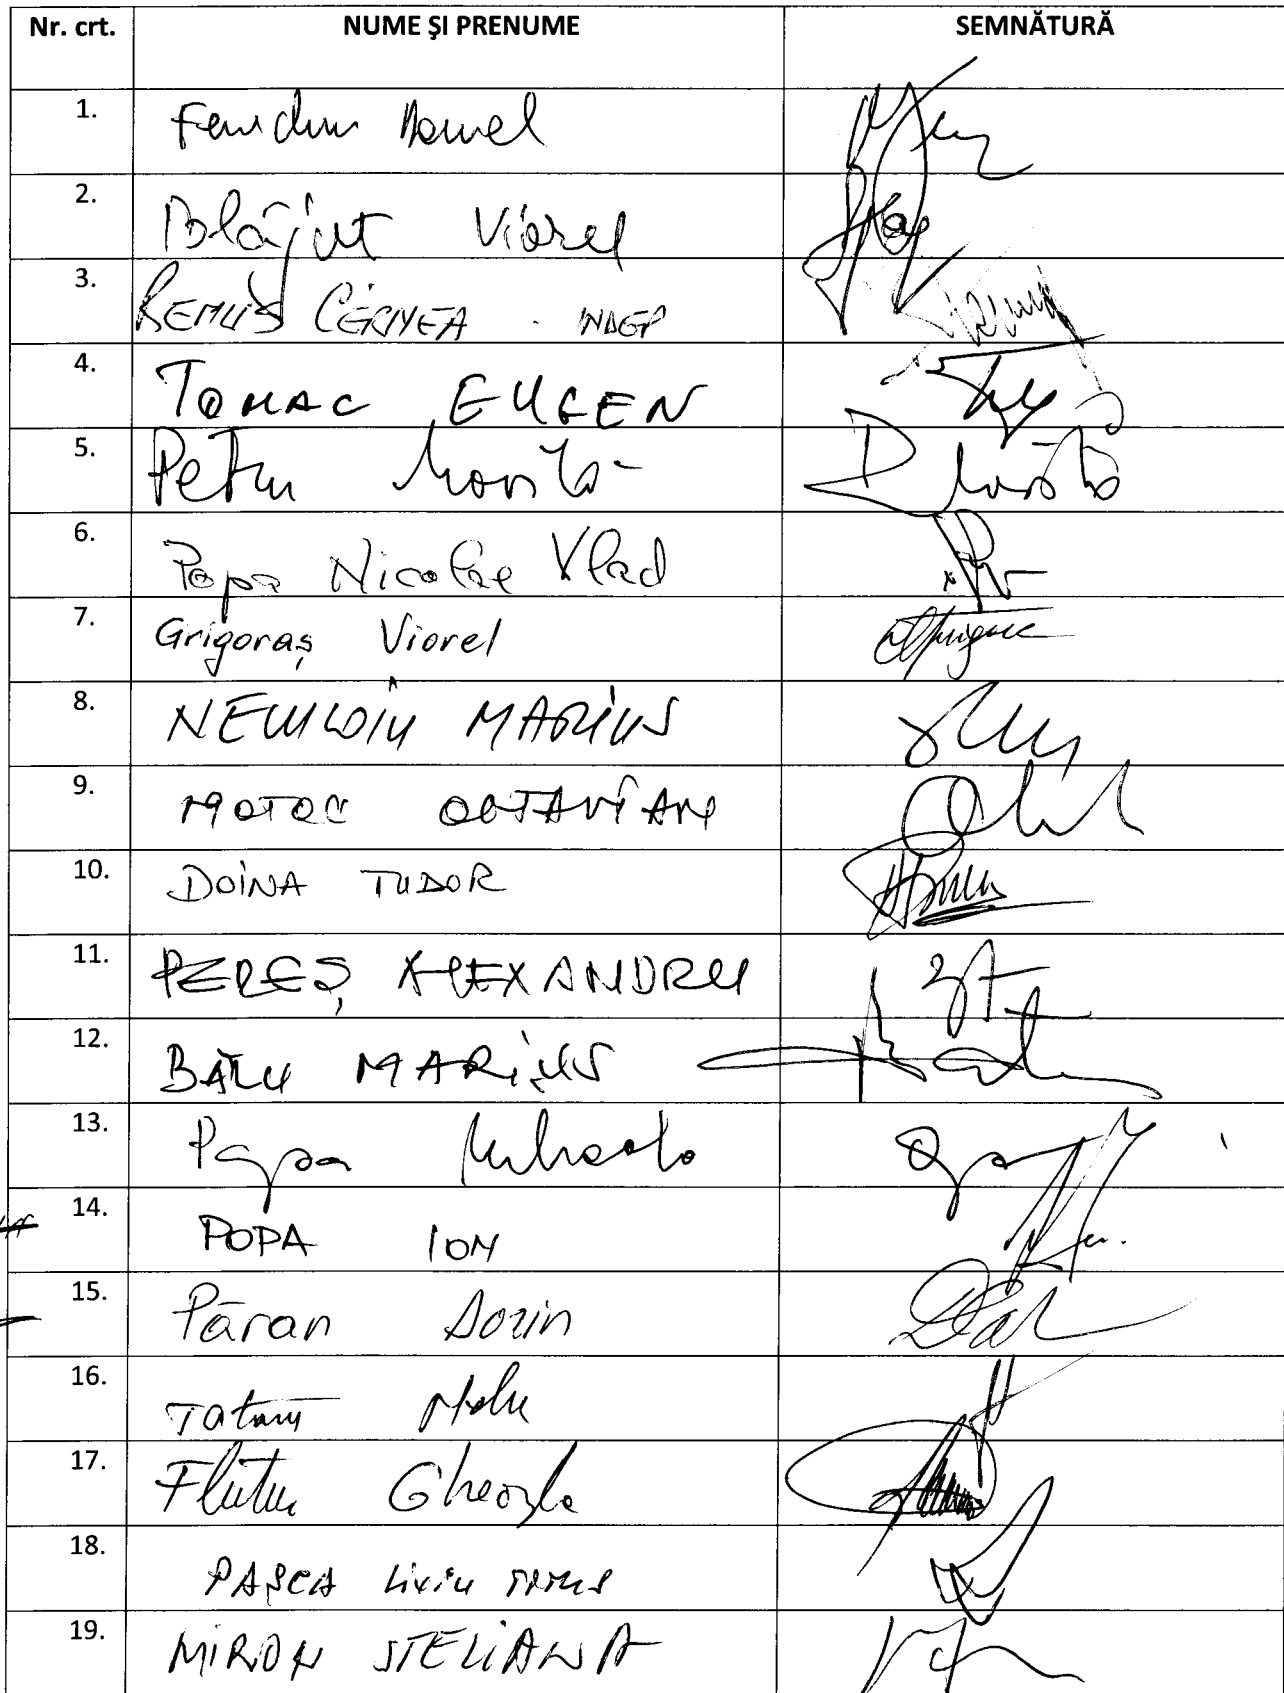 Nr. crt. NUME ŞI PRENUME SEMNĂTURĂ
1.
2. Blăjuț Viorel
3. REMUS CERNEA
4. TOMAC EUGEN
5. Petru
6. Popa Nicolae Vlad
7. Grigoraş Viorel
8. NECULOIU MARIUS
9. MOTOC OCTAVIAN
10. DOINA TUDOR
11. PEREŞ ALEXANDRU
12. BÂTU MARIUS
13. Popa Mihaela
14. POPA ION
15. Păran Dorin
16. Tataru
17. Flutur Gheorghe
18. PAŞCA Liviu TITUS
19. MIRON STELIANA